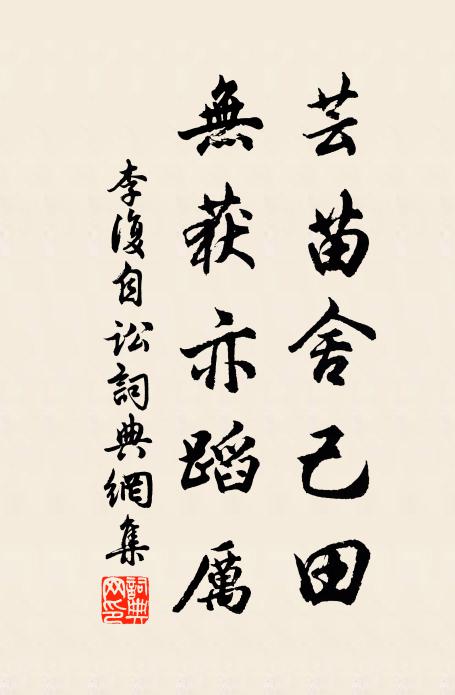 芸苗舍己田
無获亦蹈厲
李復自訟詞典網集
詞典网印